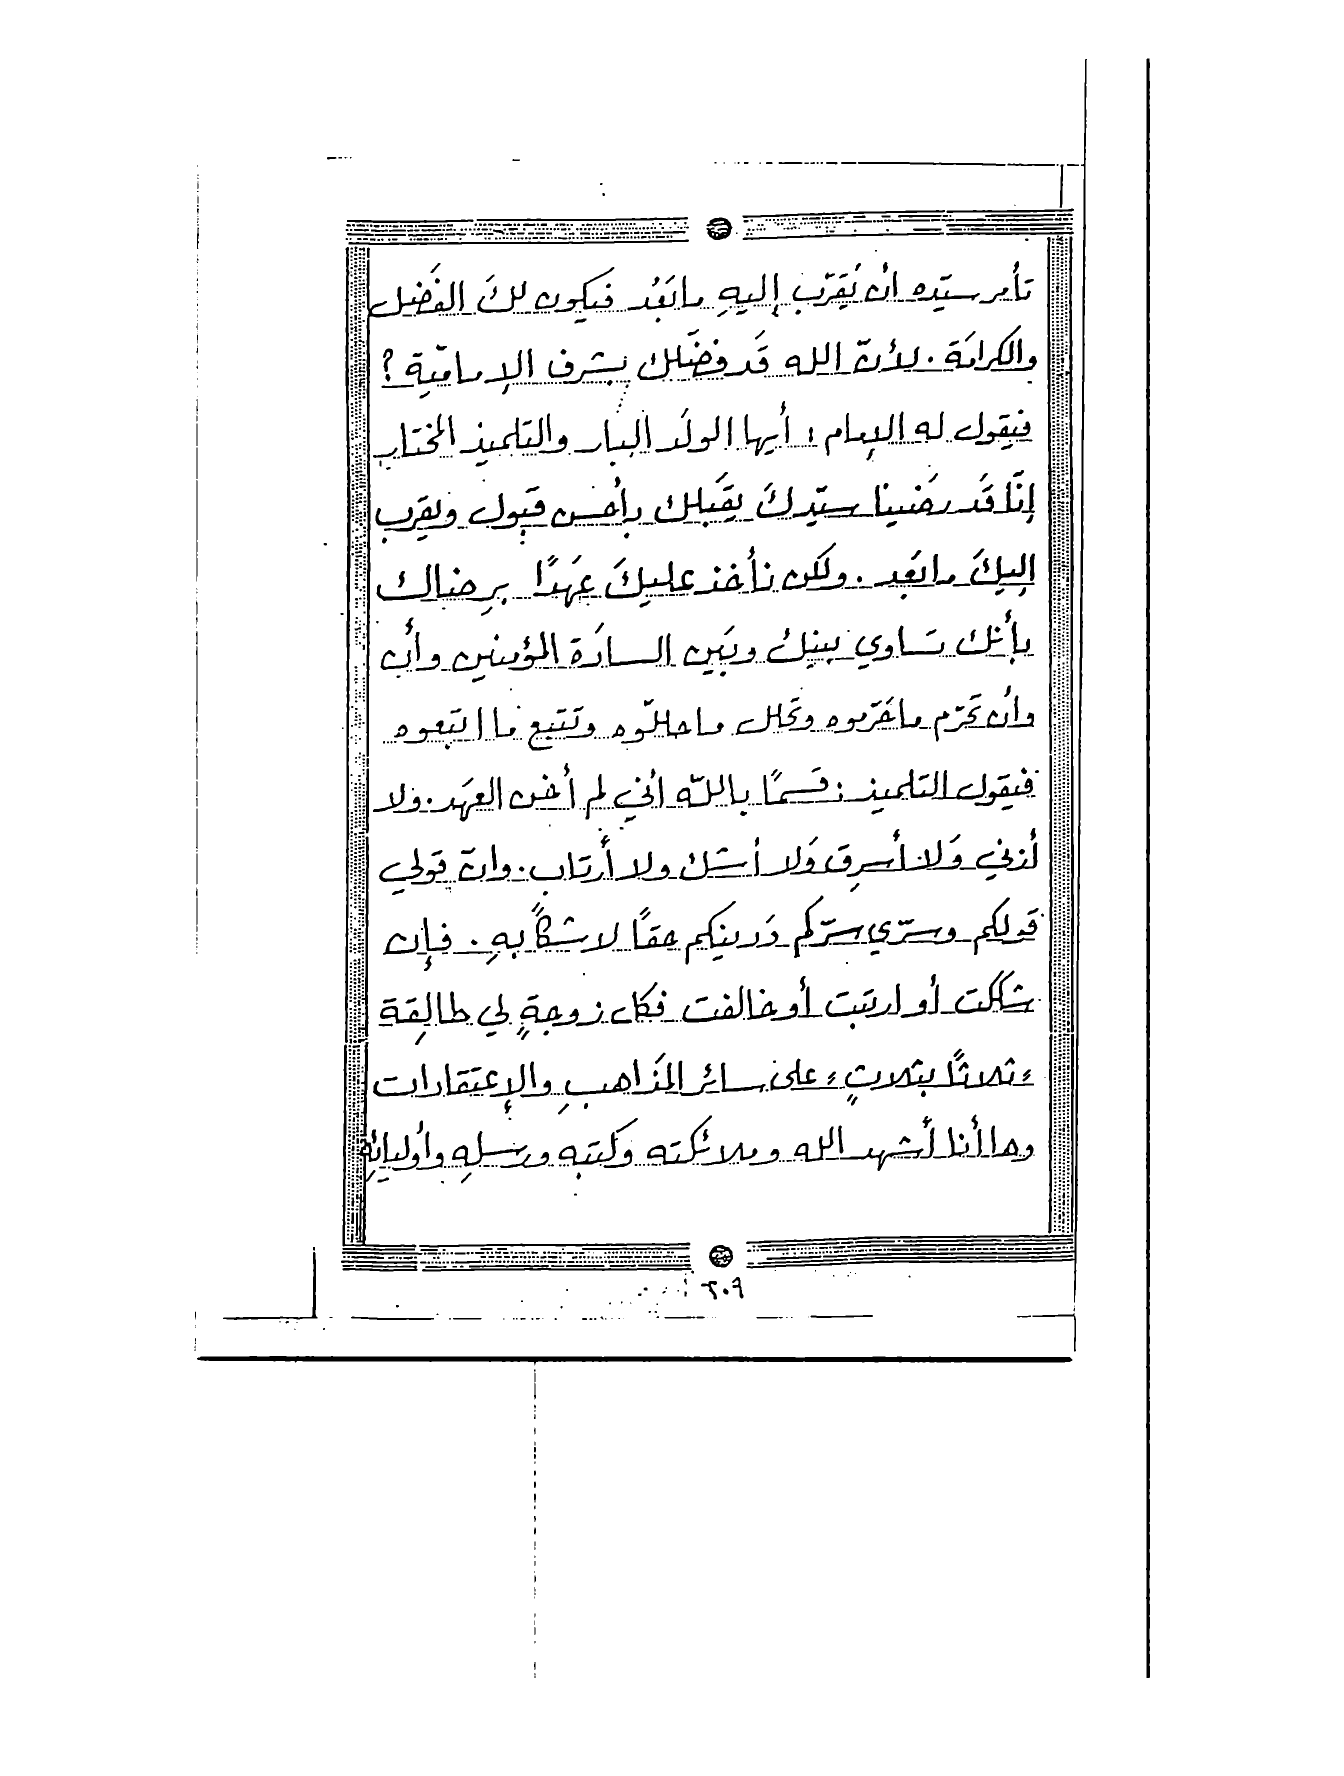 تأمر سيّده ان يُقَرّب إليهِ ما بَعُد فيكون لكَ الفَضل
والكرامَة . لأنّ الله قَد فضّلك بشرف الإماميّة ؟
فيَقول له الإمام : أيها الولَد البار والتلميذ المختار
إنّا قَد رضَينا سيّدكَ يقبَلك بأحسن قبَول ويقرب
إليكَ ما بَعد . ولكن نأخذ عليكَ عَهدًا برضاك
بأنك تساوي بينك وبَين السادَة المؤمنين وأن
وأن تحرّم ما حَرّموه وتحَلل ما حللّوه وتَتبع ما اتبَعوه
فيَقول التلميذ : قسَمًا باللّه أنّي لم أخن العهَد . ولا
أزني وَلا أسرق وَلا أشك ولا أرتاب . وانّ قولي
قَولكم وسرّي سرّكم وَدينكم حقاً لا شكاً بهِ . فإن
شككت أو ارتبَت أو خالفت فكل زوجةٍ لي طالِقة
، ثلاثًا بثلاثٍ ، على سائر المذَاهبِ والإعتقادات
وها أنا أُشهد الله وملائكته وكتبه ورسلهِ وأوليائهِ
٢٠٩